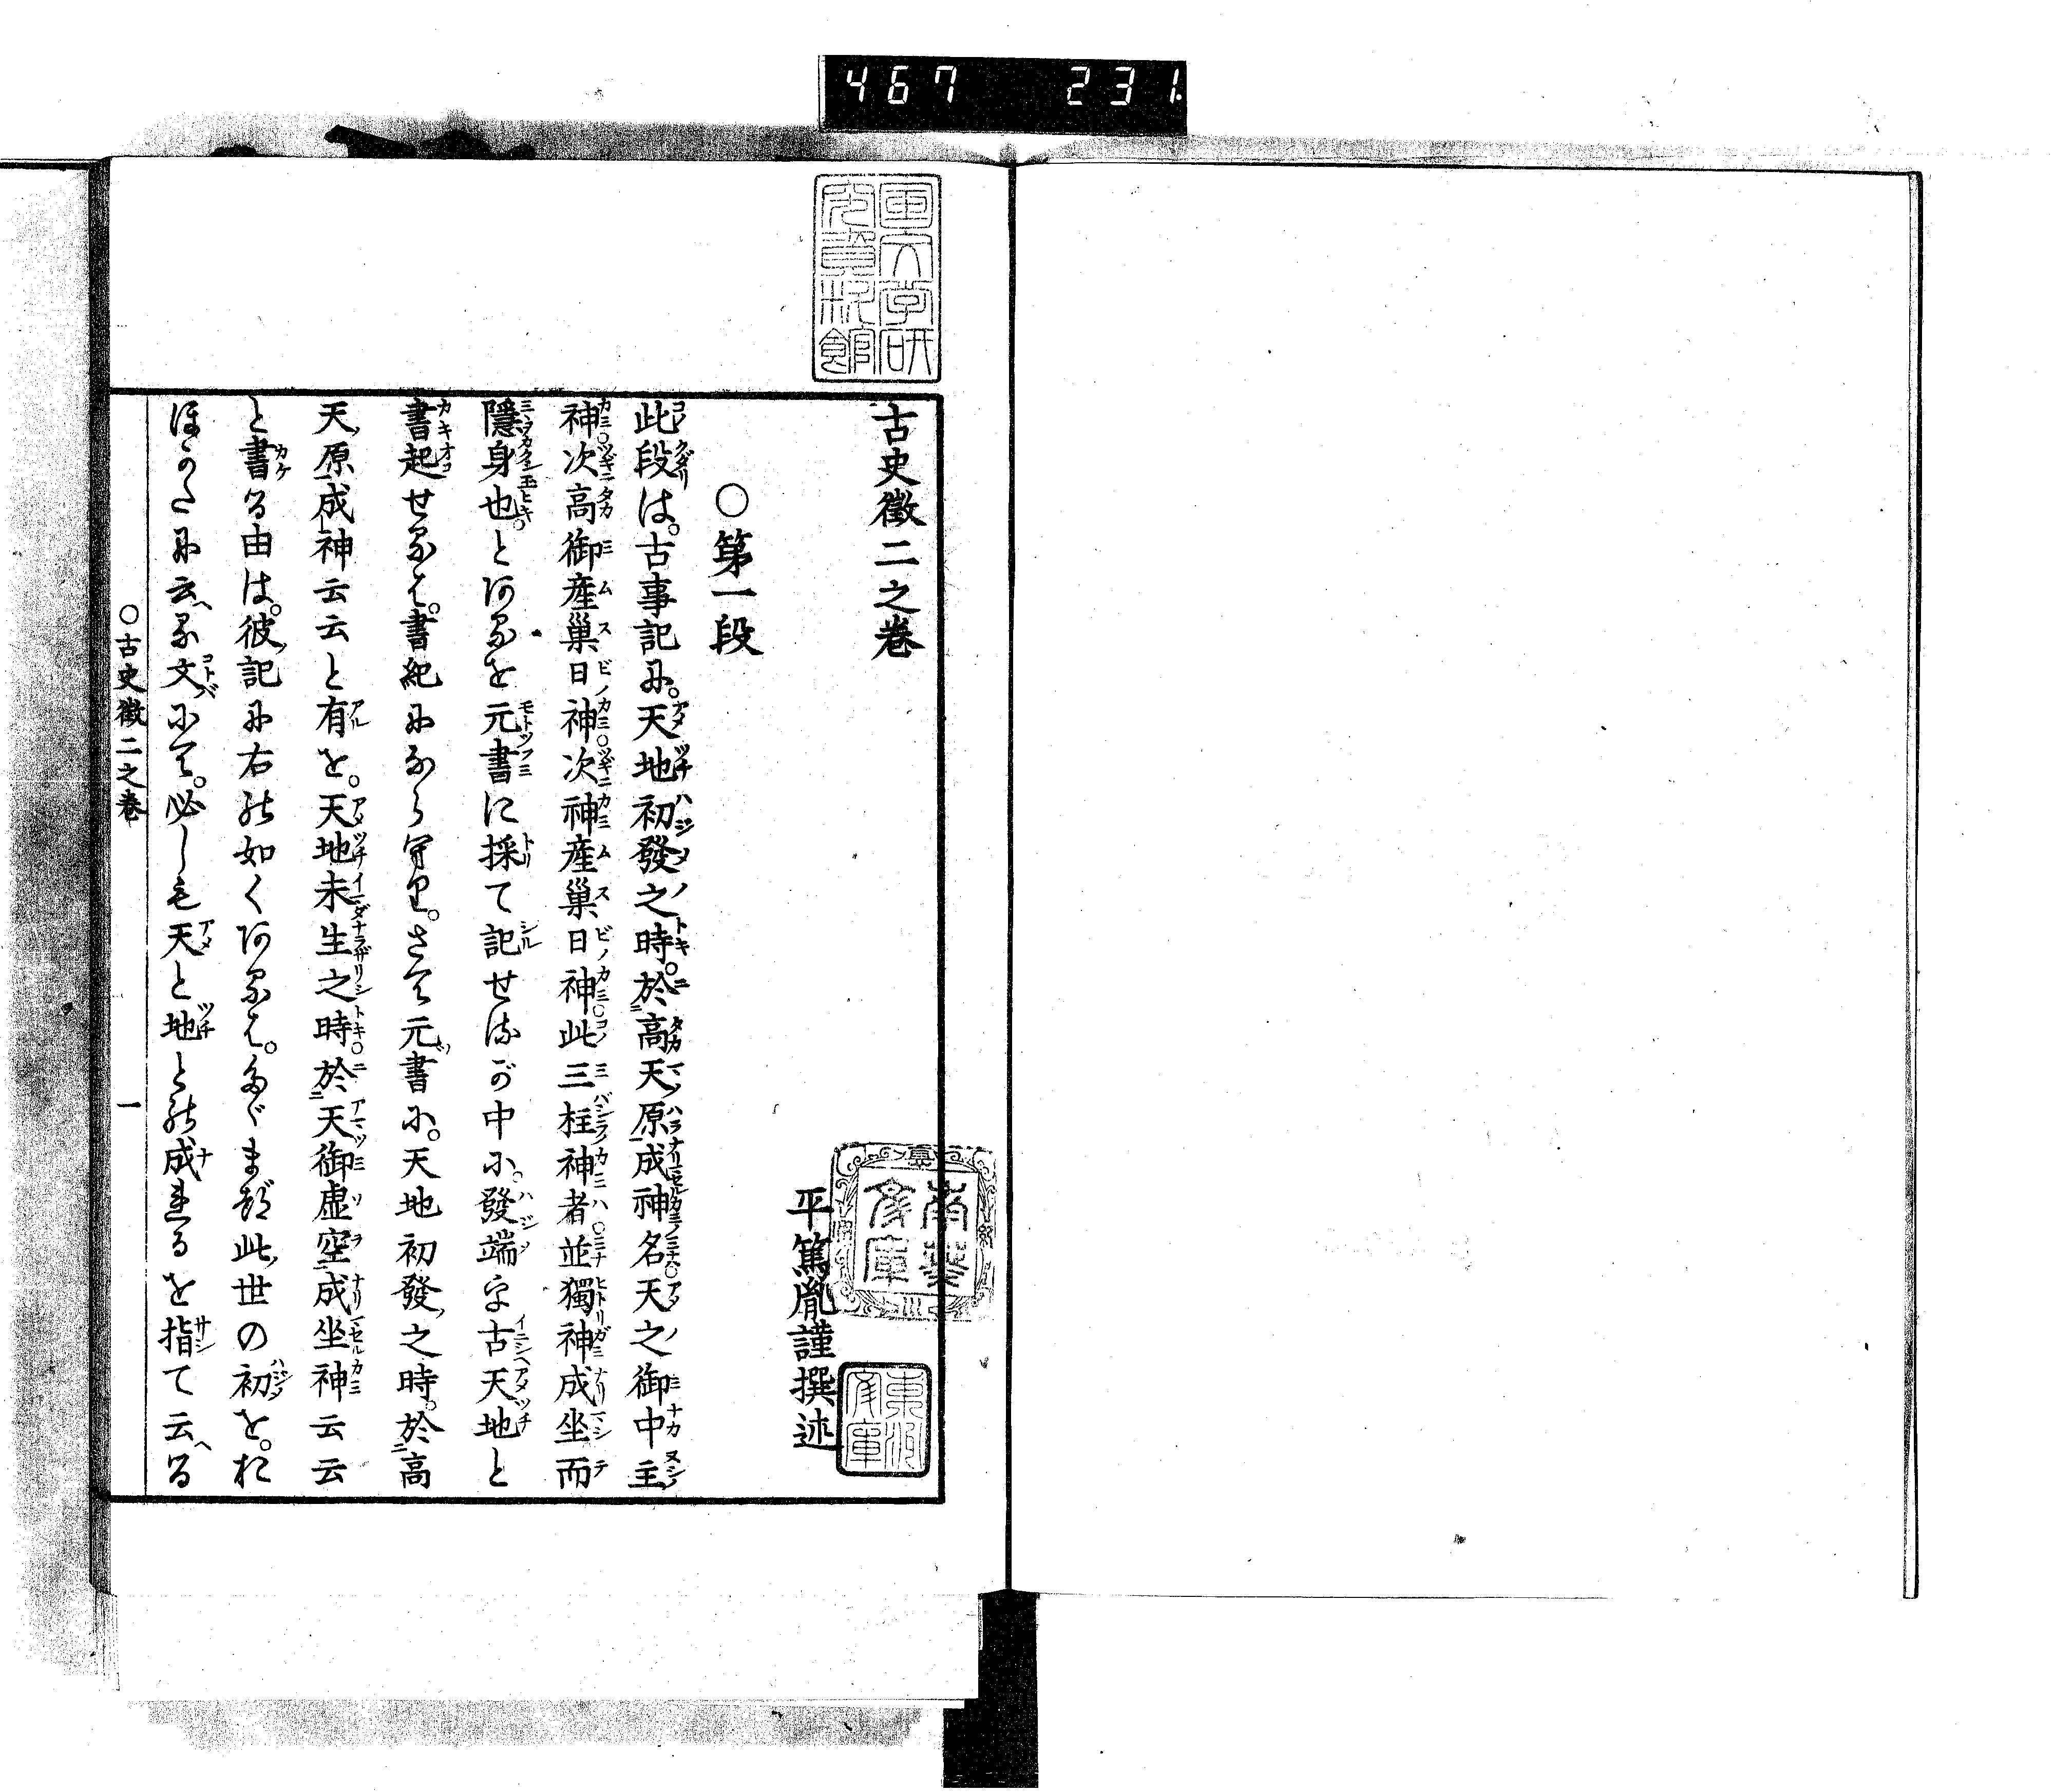 467 231.
国文学研
究資料館
古史徴二之巻
平篤胤謹撰述
○第一段
此段は。古事記に。天地初發之時。於高天原成神名天之御中主
神次高御産巣日神次神産巣日神此三柱神者並獨神成坐而
隱身也。とあるを元書に採て記せるが中に。發端を古天地と
書起せるは。書紀にならへり。さて元書に。天地初發之時。於高
天原成神云云と有を。天地未生之時於天御虚空成坐神云云
と書る由は。彼記に右の如くあるは。たゞまづ此世の初を。お
ほかたに云る文にて。必しも天と地との成れるを指て云る
○古史徴二之巻 一